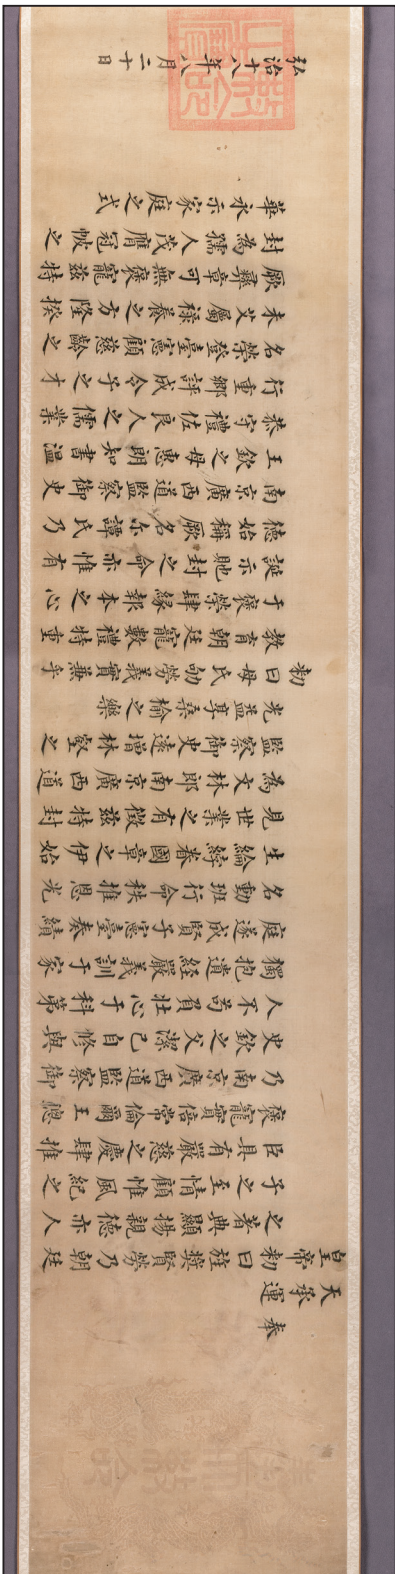 奉天勑命
奉
天承運
皇帝勑曰旌擢賢勞乃朝廷
之著典顯揚親德亦人
子之至情顧惟風紀之
臣具有嚴慈之慶肆推
褒寵實倍常倫爾王聰
乃南京廣西道監察御
史欽之父潔己自修與
人不苟負壯心于科第
獨抱遺經嚴義訓于家
庭遂成賢子憲臺奏績
名動班行命秩推恩光
生綸綍眷國章之伊始
見世業之有徵茲特封
為文林郎南京廣西道
監察御史遠增林壑之
光益享桑榆之樂
勑曰母氏劬勞義實兼乎
教育朝廷寵數禮特重
于褒榮肆緣報本之心
誕示貤封之命亦惟有
德始稱厥名尔譚氏乃
南京廣西道監察御史
王欽之母惠朗知書溫
恭守禮佐良人之儒業
行重鄉評成令子之才
名榮登臺憲顧慈齡之
未艾屬祿養之方隆揆
厥彝章可無褒寵茲特
封為孺人茂膺冠帔之
華永示家庭之式
弘治十八年八月二十日
勑命之寶